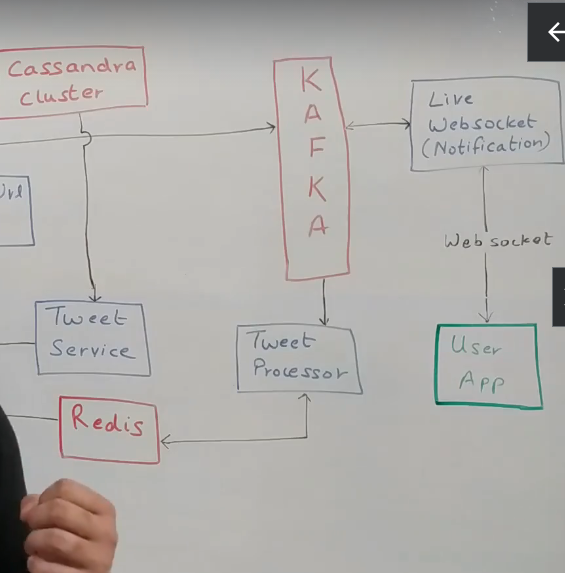 Cassandra
Cluster
K
A
F
K
A
Live
Websocket
(Notification)
Websocket
Tweet
Service
Tweet
Processor
User
App
Redis